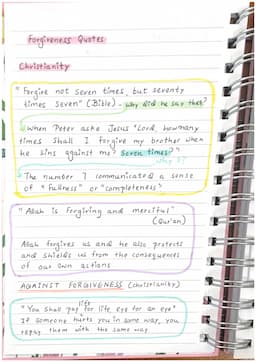 Forgiveness Quotes
Christianity
"Forgive not seven times, but seventy
times seven" (Bible) - why did he say that?
When Peter asks Jesus "Lord, how many
times shall I forgive my brother when
he sins against me? Seven times?"
why 7?
The number 7 communicated a sense
of "fullness" or "completeness"
"Allah is forgiving and merciful"
(Qur'an)
Allah forgives us and he also protects
and shields us from the consequences
of our own actions
AGAINST FORGIVENESS (christianity)
"You shall pay for life eye for an eye"
life
If someone hurts you in some way, you
repay them with the same way